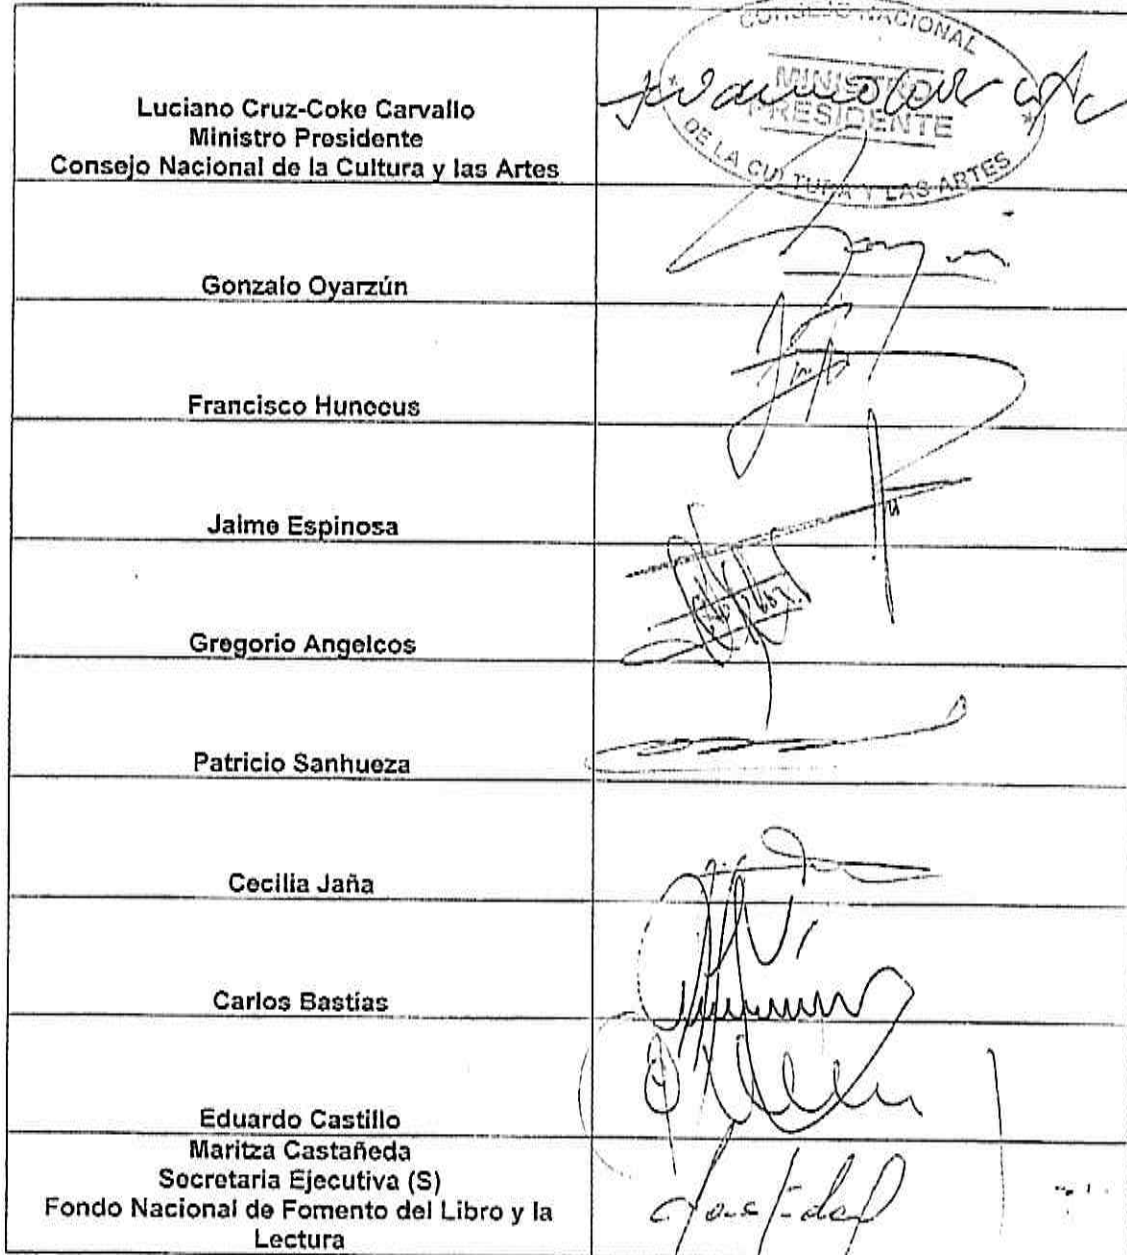 Luciano Cruz-Coke Carvallo
Ministro Presidente
Consejo Nacional de la Cultura y las Artes
CONSEJO NACIONAL
MINISTRO
PRESIDENTE
DE LA CULTURA Y LAS ARTES
Gonzalo Oyarzún
Francisco Huneeus
Jaime Espinosa
Gregorio Angelcos
Patricio Sanhueza
Cecilia Jaña
Carlos Bastías
Eduardo Castillo
Maritza Castañeda
Secretaria Ejecutiva (S)
Fondo Nacional de Fomento del Libro y la
Lectura